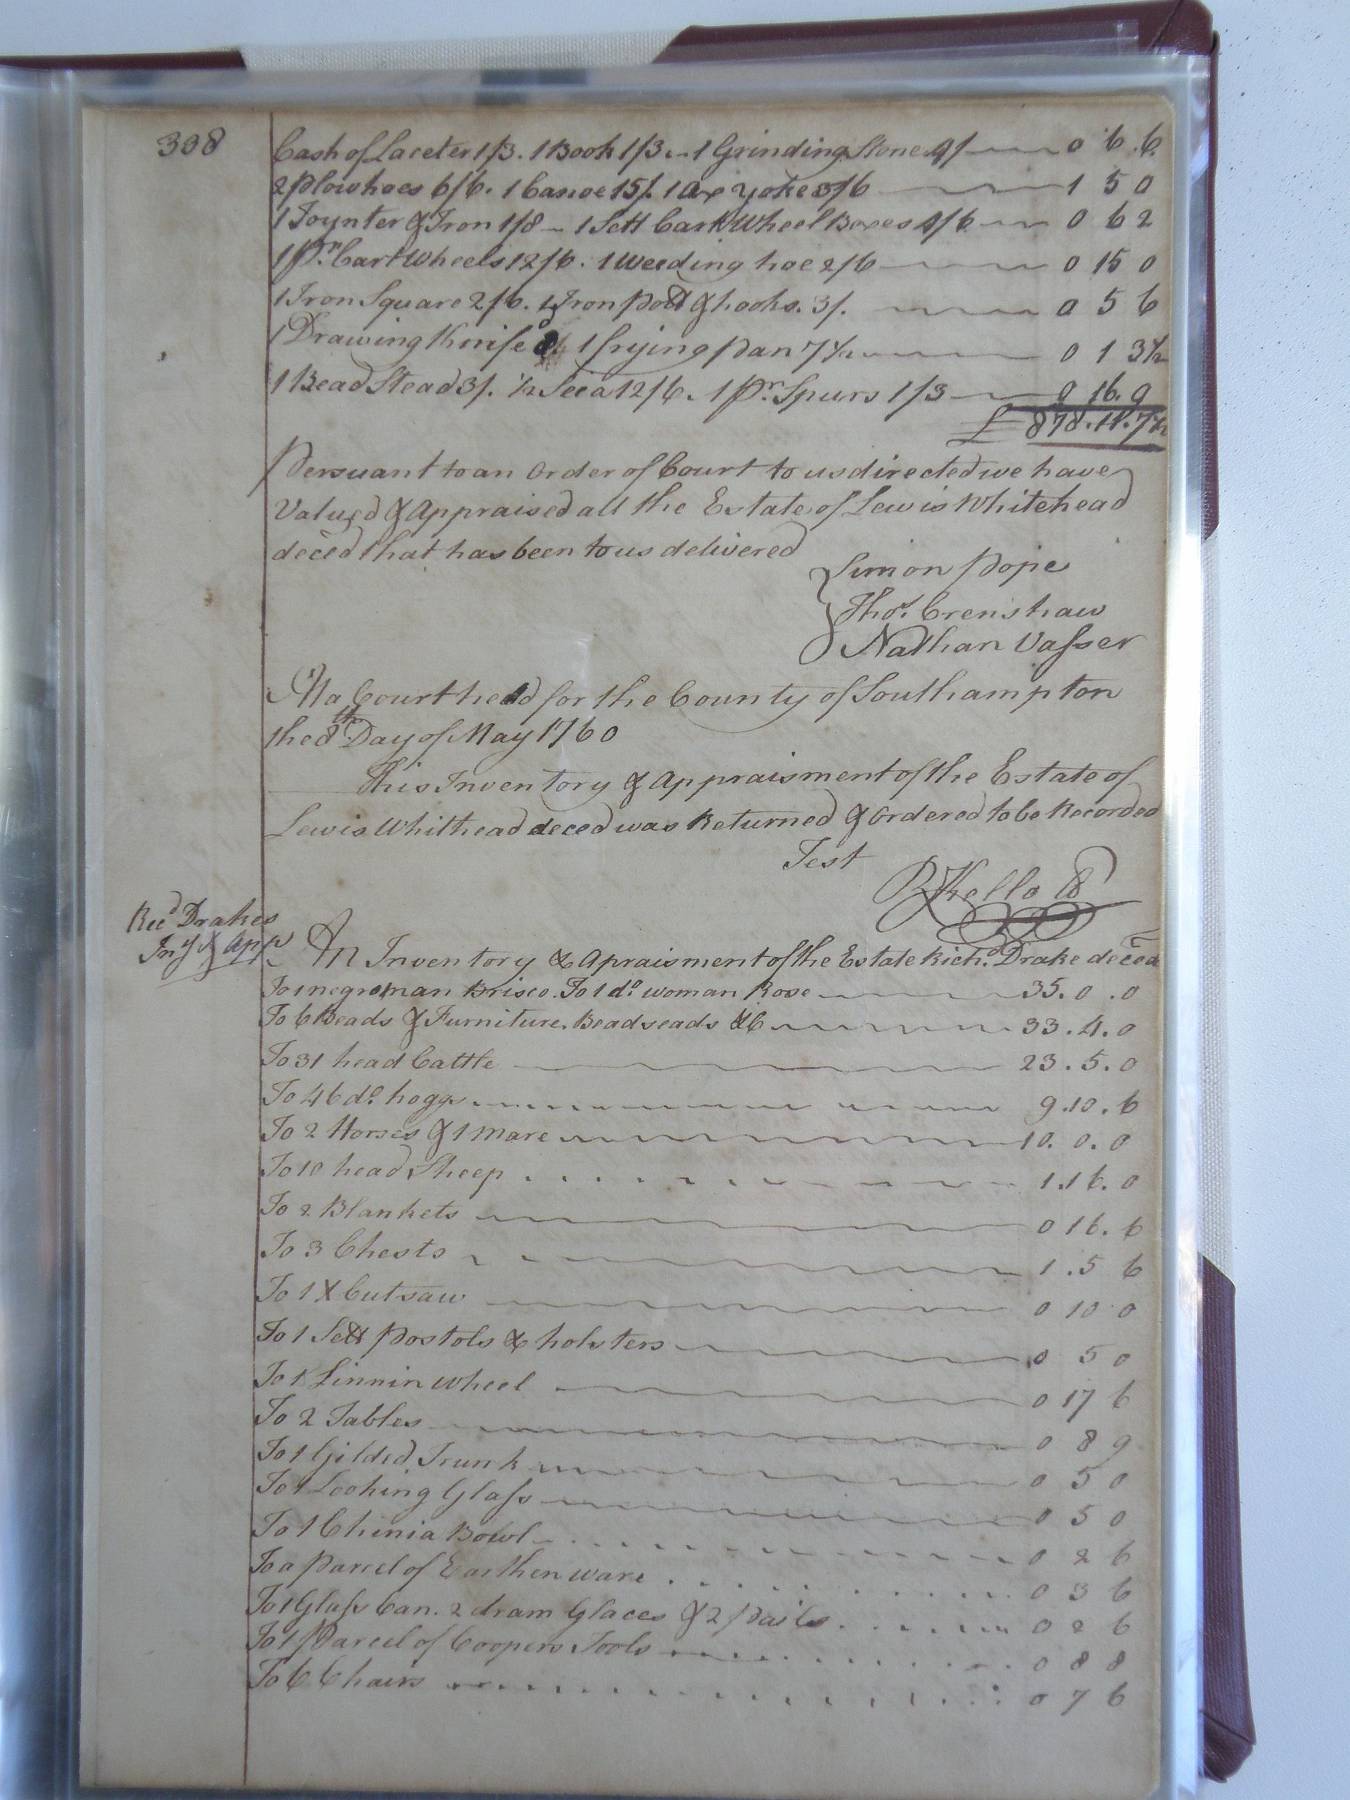 308
Cash of Laceter 1/3. 1 Book 1/3 - 1 Grinding Stone 4/ 0 6 6
2 Plow hoes 6/6. 1 Canoe 15/. 1 Ax Yoke 3/6 1 5 0
1 Joynter & Iron 1/8 - 1 Sett Cart Wheel Boxes 4/6 0 6 2
1 Pr. Cart Wheels 12/6. 1 Weeding hoe 2/6 0 15 0
1 Iron Square 2/6. 1 Iron Pott & hooks. 3/. 0 5 6
1 Drawing Knife 1 frying Pan 7½ 0 1 3½
1 Bead Stead 3/. ½ 12/6. 1 Pr. Spurs 1/3 0 16. 9
£ 878. 11. 7½
Persuant to an Order of Court to us directed we have
Valued & Appraised all the Estate of Lewis Whitehead
deced that has been to us delivered
Simon Pope
Thos. Crenshaw
Nathan Vasser
At a Court held for the County of Southampton
the 8th Day of May 1760
This Inventory & Appraisment of the Estate of
Lewis Whithead deced was Returned & Ordered to be Recorded
Test
R Kello
Ricd Drakes
Invy & App
An Inventory & Apraisment of the Estate Richd. Drake deced
To 1 negro man Brisco. To 1 do. woman Rose 35. 0. 0
To 6 Beads & Furniture. Beadseads &C 33. 4. 0
To 31 head Cattle 23. 5. 0
To 46 do. hoggs 9. 10. 6
To 2 Horses & 1 mare 10. 0. 0
To 10 head Sheep 1. 16. 0
To 2 Blankets 0 16. 6
To 3 Chests 1. 5 6
To 1 X Cutsaw 0 10 0
To 1 Sett Postols & holsters 0 5 0
To 1 Linnin Wheel 0 17 6
To 2 Tables 0 8 9
To 1 Gilded Trunk 0 5 0
To 1 Looking Glass 0 5 0
To 1 Chinia Bowl 0 2 6
To a Parcel of Earthen ware 0 3 6
To 1 Glass Can. 2 dram Glaces & 2 Pails 0 2 6
To 1 Parcel of Coopers Tools 0 8 8
To 6 Chairs 0 7 6